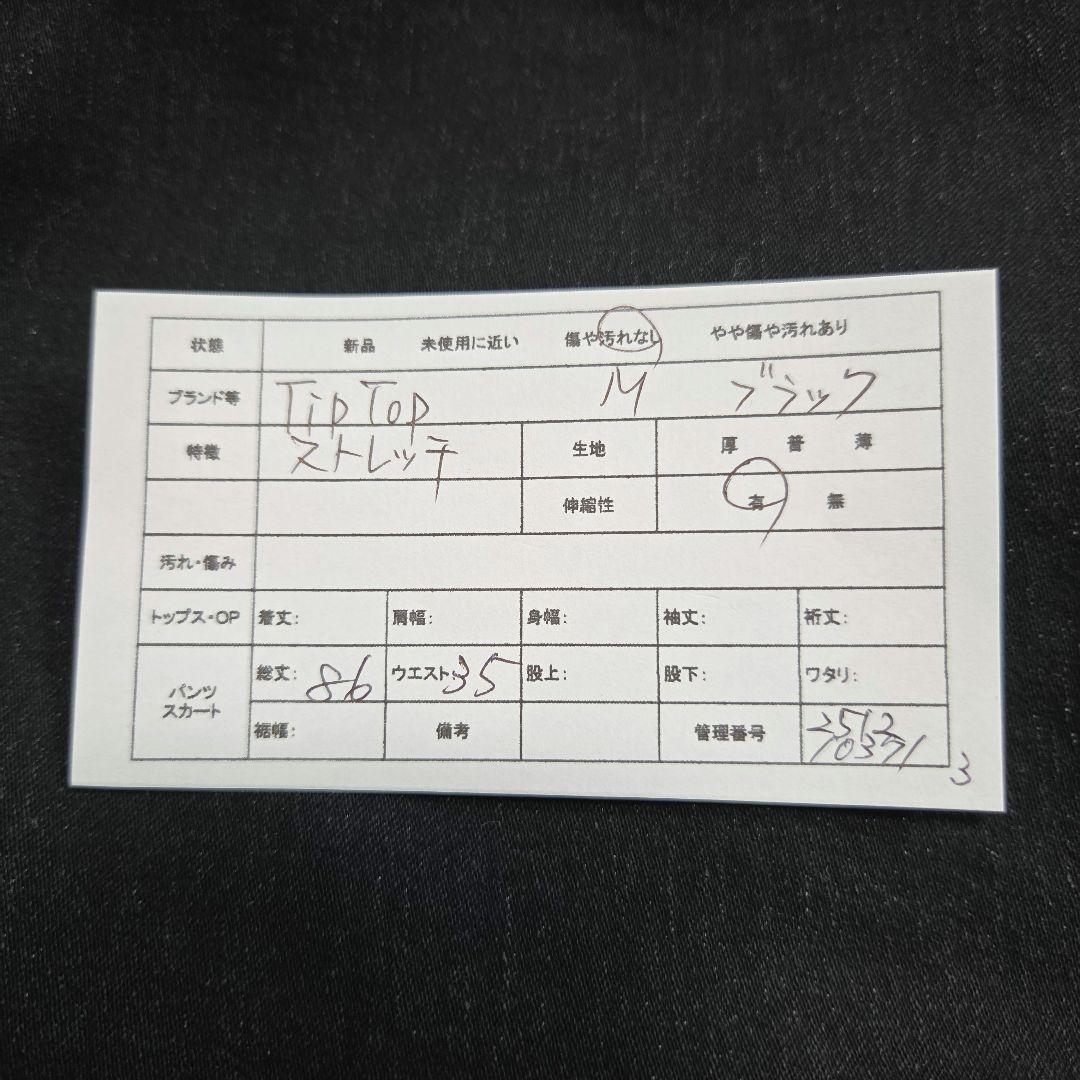 状態 新品 未使用に近い 傷や汚れなし やや傷や汚れあり
ブランド等 TipTop M ブラック
特徴 ストレッチ 生地 厚 普 薄
伸縮性 有 無
汚れ・傷み
トップス・OP 着丈: 肩幅: 身幅: 袖丈: 裄丈:
パンツ
スカート
総丈: 86 ウエスト: 35 股上: 股下: ワタリ:
裾幅: 備考 管理番号 2512
10371
3